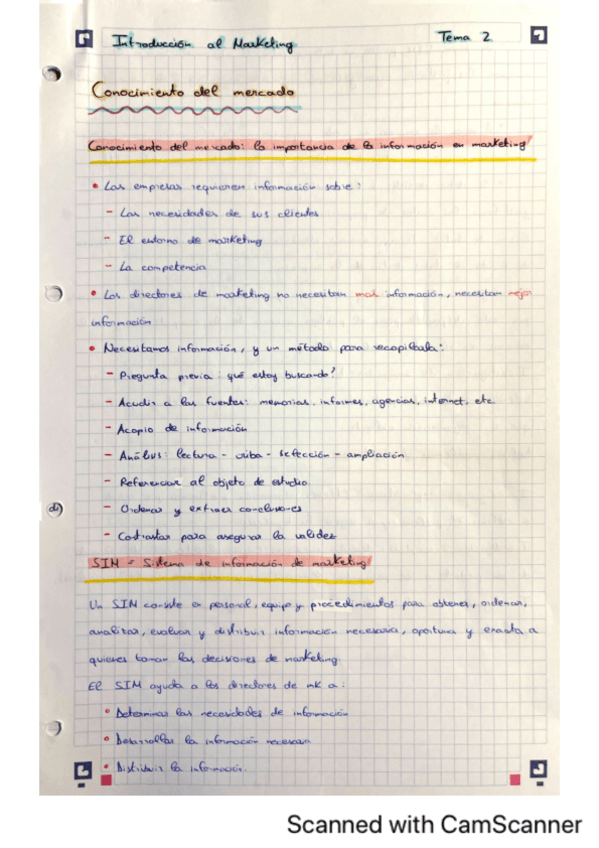 Introducción al Marketing
Tema 2
Conocimiento del mercado
Conocimiento del mercado: la importancia de la información en marketing
• Las empresas requieren información sobre:
- Las necesidades de sus clientes
- El entorno de marketing
- La competencia
• Los directores de marketing no necesitan más información, necesitan mejor
información
• Necesitamos información, y un método para recopilarla:
- Pregunta previa: qué estoy buscando?
- Acudir a las fuentes: memorias, informes, agencias, internet, etc.
- Acopio de información
- Análisis: lectura - criba - selección - ampliación
- Referenciar al objeto de estudio
- Ordenar y extraer conclusiones
- Contrastar para asegurar la validez
SIM = Sistema de información de marketing
Un SIM consiste en personal, equipo y procedimientos para obtener, ordenar,
analizar, evaluar y distribuir información necesaria, oportuna y exacta a
quienes toman las decisiones de marketing
El SIM ayuda a los directores de mk a:
• Determinar las necesidades de información
• Desarrollar la información necesaria
• Distribuir la información.
Scanned with CamScanner